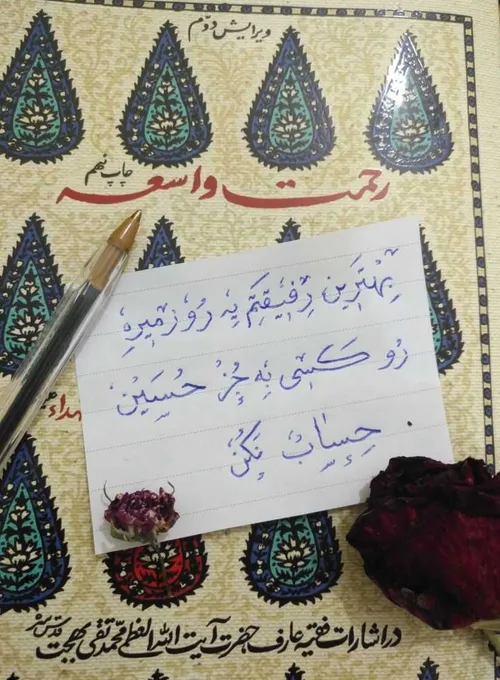 ویرایش دوّم
چاپ نهم
رحمت واسعه
بِهْتَرین رِفیٖقِتَم یِه رُوز میٖرِهٖ
رُو کَسیٖ بِه جُزْ حُسَیْن
حِسٰابْ نَکُنْ.
در اشارات فقیه عارف حضرت آیت الله العظمی محمد تقی بهجت قدّس سرّه